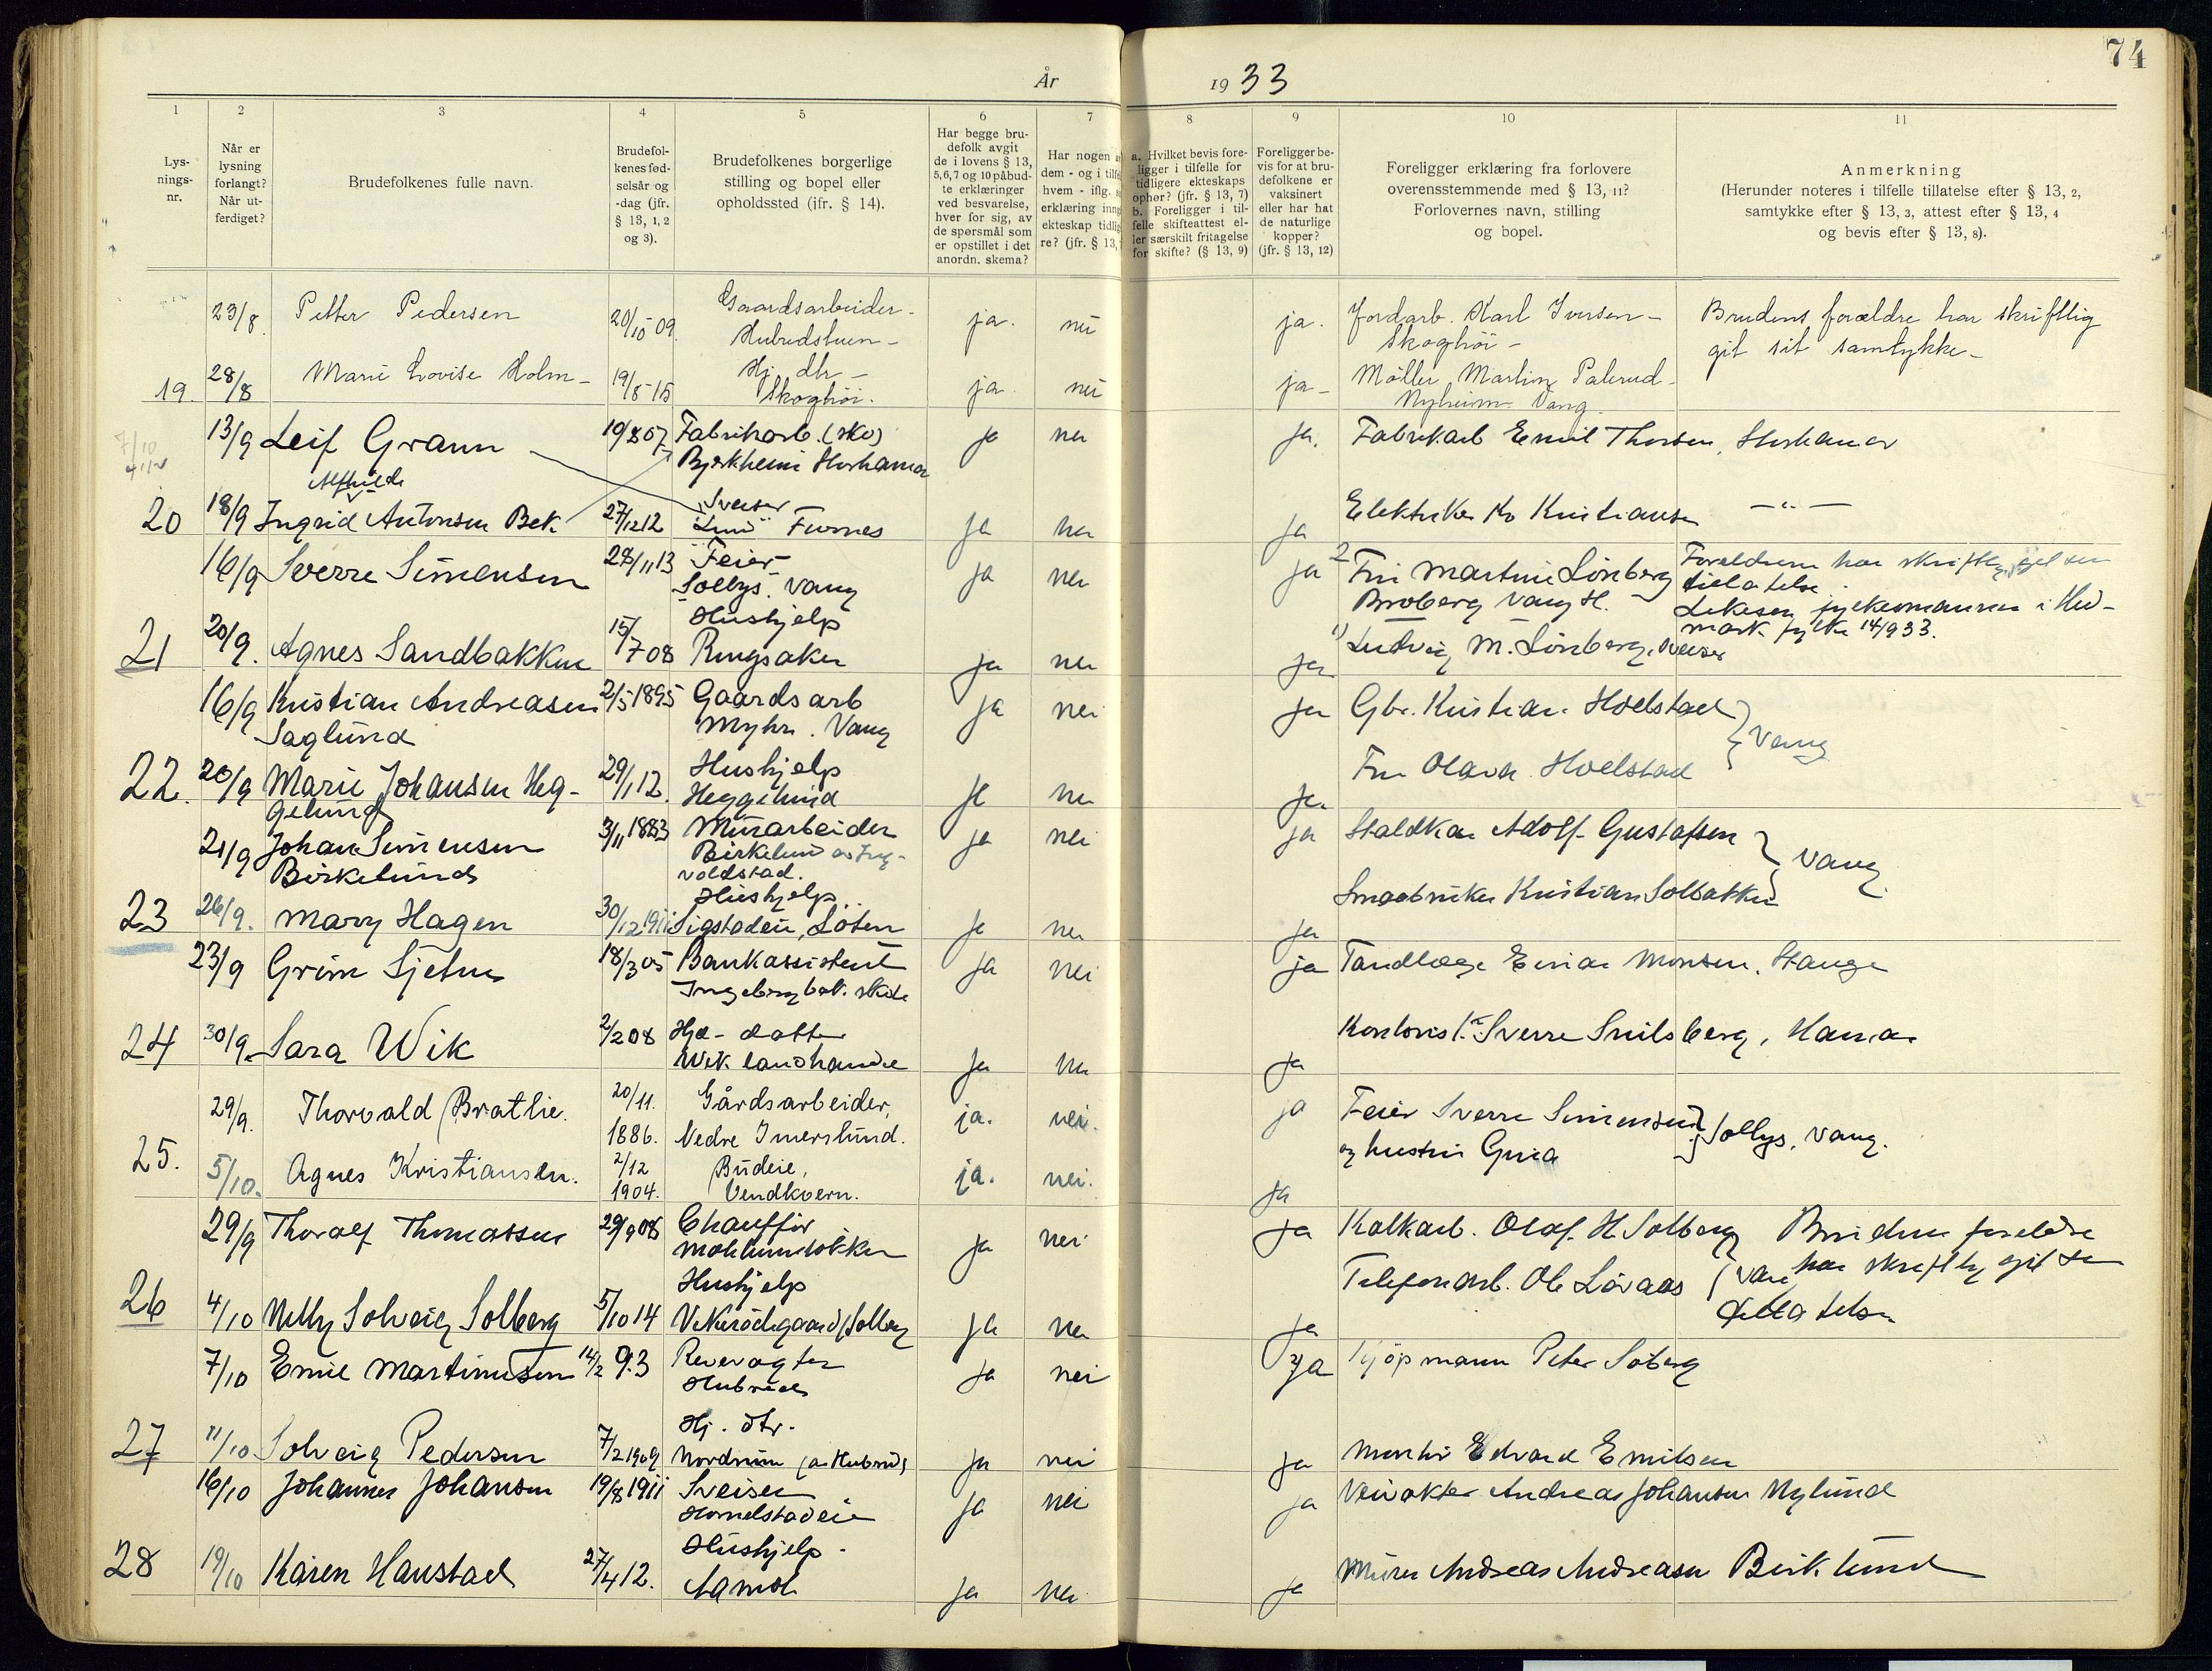 74
År 1933
1 2 3 4 5 6 7 8 9 10 11
Lys-
nings-
nr.
Når er
lysning
forlangt?
Når ut-
ferdiget?
Brudefolkenes fulle navn.
Brudefol-
kenes fød-
selsår og
-dag (jfr.
§ 13, 1, 2
og 3).
Brudefolkenes borgerlige
stilling og bopel eller
opholdssted (ifr. § 14).
Har begge bru-
defolk avgit
de i lovens § 13,
5, 6, 7 og 10 påbud-
te erklæringer
ved besvarelse,
hver for sig, av
de spørsmål som
er opstillet i det
anordn. skema?
Har nogen
dem - og i tilfe
hvem - iflg.
erklæring inng
ekteskap tidlig
re? (jfr. § 13,
a. Hvilket bevis fore-
ligger i tilfelle for
tidligere ekteskaps
ophør? (jfr. § 13, 7)
b. Foreligger i til-
felle skifteattest el-
ler særskilt fritagelse
for skifte? (§ 13, 9)
Foreligger be-
vis for at bru-
defolkene er
vaksinert
eller har hat
de naturlige
kopper?
(jfr. § 13, 12)
Foreligger erklæring fra forlovere
overensstemmende med § 13, 11?
Forlovernes navn, stilling
og bopel.
Anmerkning
(Herunder noteres i tilfelle tillatelse efter § 13, 2,
samtykke efter § 13, 3, attest efter § 13, 4
og bevis efter § 13, 8).
23/8. Petter Pedersen 20/10 09. Gaardsarbeider - ja. nei ja. Jordarb. Karl Iversen - Brudens forældre har skriftlig
Hubredstuen - Skoghöi - git sit samtykke -
19. 28/8 Marie Lovise Holm - 19/8-15 Hj. dtr - ja nei ja - Møller Martin Palerud -
Skoghöi. Nyheim Vang.
13/9 Leif Grann 19/8 07 Fabrikarb. (sko) ja nei ja. Fabrikarb Emil Thorsen, Storhamar
Bjerkheim Storhamar
Alfhilde
20 18/9 Ingrid Antonsen Bek 27/12 12 Sveiser ja nei ja Elektriker Kr Kristiansen - " -
Lund Furnes
16/9 Sverre Simensen 28/11 13 Feier ja nei ja 2 Fru Martine Lönberg Foreldrene har skriftlig git sin
Sollys. Vang Broberg Vang H. tillatelse
21 20/9. Agnes Sandbakken 15/7 08 Hushjelp fylkesmannen i Hed-
Ringsaker ja nei ja 1) Ludvig M. Lönberg, sveiser mark fylke 14/9 33.
16/9 Kristian Andreasen 2/5 1895 Gaardsarb ja nei ja Gbr. Kristian Hoelstad
Saglund Myhr. Vang } Vang
22. 20/9 Marie Johansen Heg- 29/1 12. Hushjelp ja nei ja. Fru Olava Hoelstad
gelund Heggelund
21/9 Johan Simensen 3/11 1883 Murarbeider ja nei ja Staldkar Adolf Gustafsen
Birkelund Birkelund av Ing- } Vang
voldstad.
23 26/9. Mary Hagen 30/12 1911 Hushjelp ja nei ja Smaabruker Kristian Solbakken
Sigstadeie, Löten
23/9 Grim Sjetne 18/3 05 Bankassistent ja nei ja Tandlæge Einar Monsen. Stange
Ingeberg bak. skole
24 30/9. Sara Wik 2/2 08 Hje - datter ja nei ja Kontorist Sverre Snilsberg, Hamar
Wik landhandel
29/9. Thorvald Bratlie. 20/11. 1886. Gårdsarbeider, ja. nei. ja Feier Sverre Simensen
Nedre Imerslund. } Sollys, Vang.
25. 5/10. Agnes Kristiansen. 2/12 1904. Budeie, ja. nei. ja og hustru Guia
Vendkvern.
29/9 Thoralf Thomassen 29/9 08 Chaufför ja nei ja Kalkarb. Olaf H Solberg Brudens foreldre
Vang har skriftlig git sin
26 4/10 Nelly Solveig Solberg 5/10 14 Hushjelp ja nei ja Telefonarb. Ole Lövaas tillatelse
7/10 Emil Martinussen 14/2 93 Revevogter ja nei ja Kjöpmann Peter Söberg
Hubred
27 11/10 Solveig Pedersen 7/2 1909 Hj. dtr. ja nei ja Montör Edvard Emilsen
Nordrum på Hubred
16/10 Johannes Johansen 19/8 1911 Sveiser ja nei ja Veivokter Andreas Johansen Nylund
Homelstadeie
28 19/10 Karen Hanstad 27/4 12. Hushjelp. ja nei ja Murer Andreas Andreasen Birklund
Aamot